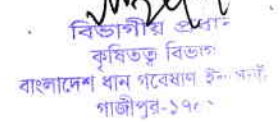 বিভাগীয় প্রধান
কৃষিতত্ত্ব বিভাগ
বাংলাদেশ ধান গবেষণা
গাজীপুর-১৭০